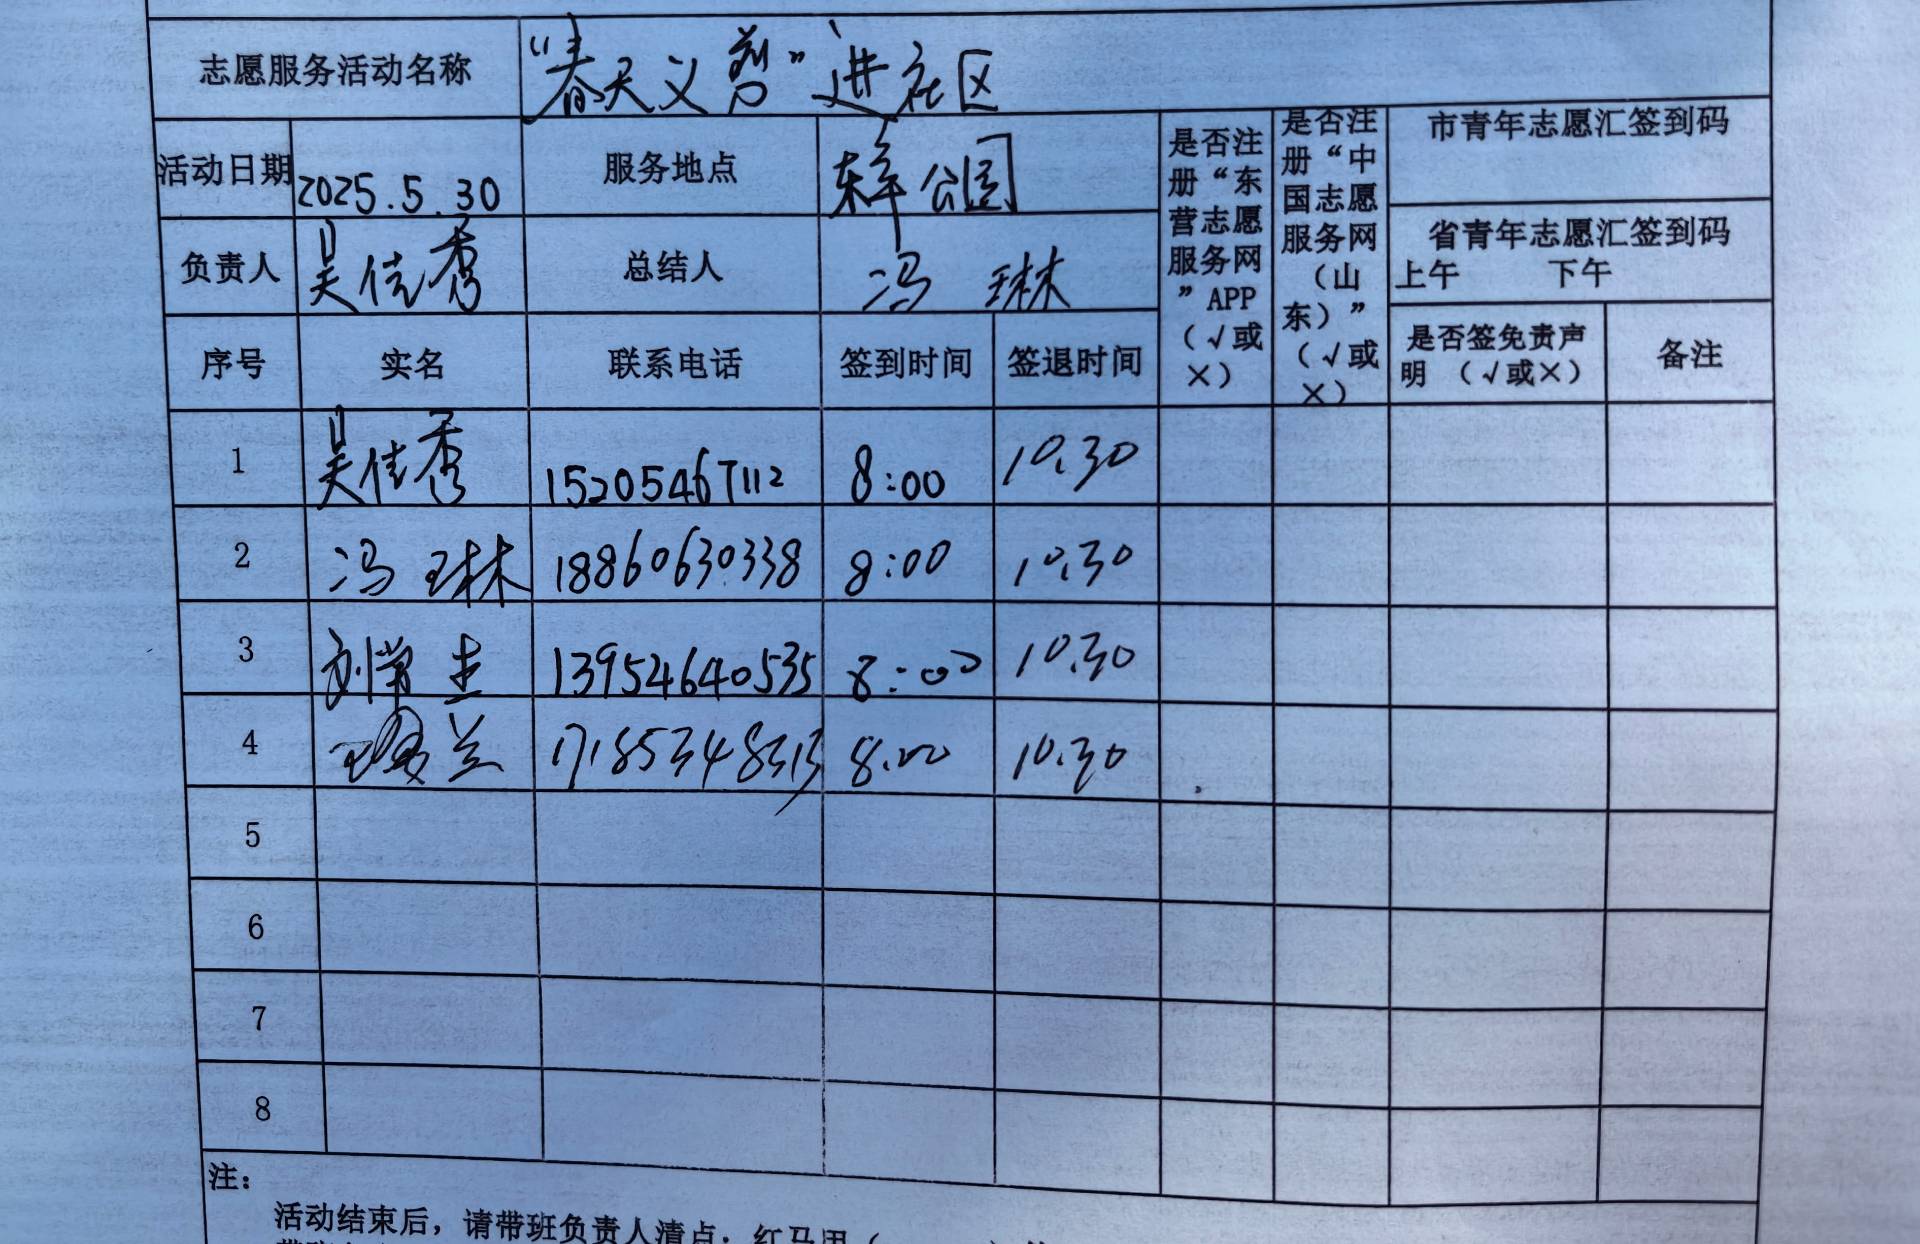 志愿服务活动名称 “春天义剪”进社区
活动日期 2025.5.30 服务地点 公园
是否注册“东营志愿服务网”APP（√或×）
是否注册“中国志愿服务网（山东）”（√或×）
市青年志愿汇签到码
省青年志愿汇签到码
上午 下午
负责人 吴佳秀 总结人 冯琳
序号 实名 联系电话 签到时间 签退时间 是否签免责声明（√或×） 备注
1 吴佳秀 15205467112 8:00 10.30
2 冯琳 18860630338 8:00 10.30
3 刘常 13954640535 8:00 10.30
4 王 兰 8.00 10.30
5
6
7
8
注：
活动结束后，请带班负责人清点：红马甲（